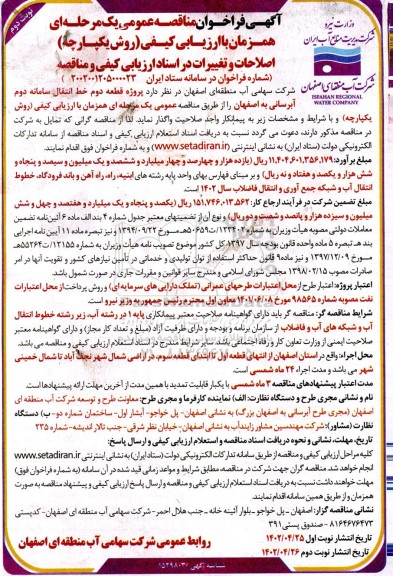 نوبت دوم
آگهی فراخوان مناقصه عمومی یک مرحله‌ای
همزمان با ارزیابی کیفی (روش یکپارچه)
اصلاحات و تغییرات در اسناد ارزیابی کیفی و مناقصه
(شماره فراخوان در سامانه ستاد ایران ۲۰۰۲۰۰۱۲۰۵۰۰۰۰۲۳)
وزارت نیرو
شرکت مدیریت منابع آب ایران
شرکت آب منطقه‌ای اصفهان
ISFAHAN REGIONAL
WATER COMPANY
شرکت سهامی آب منطقه‌ای اصفهان در نظر دارد پروژه قطعه دوم خط انتقال سامانه دوم
آبرسانی به اصفهان را از طریق مناقصه عمومی یک مرحله ای همزمان با ارزیابی کیفی (روش
یکپارچه) و با شرایط و مشخصات زیر به پیمانکار واجد صلاحیت واگذار نماید. لذا از مناقصه گرانی که تمایل به شرکت
در مناقصه مذکور دارند، دعوت می گردد نسبت به دریافت اسناد استعلام ارزیابی کیفی و اسناد مناقصه از سامانه تدارکات
الکترونیکی دولت (ستاد ایران) به نشانی اینترنتی (www.setadiran.ir) و به شماره فراخوان فوق اقدام نمایند.
مبلغ برآورد: ۱۱,۴۰۴,۶۰۱,۳۵۶,۱۷۹ ریال (یازده هزار و چهارصد و چهار میلیارد و ششصد و یک میلیون و سیصد و پنجاه و
شش هزار و یکصد و هفتاد و نه ریال) و بر مبنای فهارس بهای واحد پایه رشته های ابنیه، راه، راه آهن و باند فرودگاه، خطوط
انتقال آب و شبکه جمع آوری و انتقال فاضلاب سال ۱۴۰۲ است.
مبلغ تضمین شرکت در فرآیند ارجاع کار: ۱۵۱,۷۴۶,۰۱۳,۵۶۲ ریال (یکصد و پنجاه و یک میلیارد و هفتصد و چهل و شش
میلیون و سیزده هزار و پانصد و شصت و دو ریال) و نوع آن از تضمینهای معتبر جدول شماره ۴ بند الف ماده ۶ آئین‌نامه تضمین
معاملات دولتی مصوبه هیأت وزیران به شماره ۱۲۳۴۰۲/ت۵۰۶۵۹هـ مورخ ۱۳۹۴/۰۹/۲۲ و نیز تبصره ماده ۱۱ آیین نامه اجرایی
بند هـ تبصره ۵ ماده واحده قانون بودجه سال ۱۳۹۷ کل کشور موضوع تصویب نامه هیأت وزیران به شماره ۱۲۱۵۵/ت۵۵۲۶۴هـ
مورخ ۱۳۹۷/۰۲/۰۹ و نیز ماده ۹ قانون حداکثر استفاده از توان تولیدی و خدماتی در تأمین نیازهای کشور و تقویت آنها در امر
صادرات مصوب ۱۳۹۸/۰۲/۱۵ مجلس شورای اسلامی و مندرج سایر قوانین و مقررات جاری در صورت شمول باشد
اعتبار پروژه: اعتبار طرح از محل اعتبارات طرحهای عمرانی (تملک دارایی های سرمایه ای) و روش پرداخت از محل اعتبارات
نفت مصوبه شماره ۹۸۵۶۵ مورخ ۱۴۰۱/۰۶/۰۸ معاون اول محترم رئیس جمهور به وزیر نیرو است.
شرایط مناقصه گر: مناقصه گر باید دارای گواهینامه صلاحیت معتبر پیمانکاری پایه ۱ در رشته آب، زیر رشته خطوط انتقال
آب و شبکه های آب و فاضلاب از سازمان برنامه و بودجه و دارای ظرفیت آزاد (مبلغ و تعداد کار مجاز) و دارای گواهینامه معتبر
صلاحیت ایمنی از وزارت تعاون کار و رفاه اجتماعی باشد. سایر شرایط مندرج در اسناد استعلام ارزیابی کیفی و مناقصه می باشد.
محل اجرا: واقع در استان اصفهان از انتهای قطعه اول تا ابتدای قطعه سوم، در اراضی شمال شهر نجف آباد تا شمال خمینی
شهر می باشد و مدت اجراء ۲۴ ماه شمسی است.
مدت اعتبار پیشنهادهای مناقصه ۳ ماه شمسی با یکبار قابلیت تمدید با همین مدت از آخرین مهلت ارائه پیشنهادها است.
نام و نشانی مجری طرح و دستگاه نظارت: الف) نماینده کارفرما و مجری طرح: معاونت طرح و توسعه شرکت آب منطقه ای
اصفهان (مجری طرح آبرسانی به اصفهان بزرگ) به نشانی اصفهان- پل خواجو- آبشار اول- ساختمان شماره دو- ب) دستگاه
نظارت (مشاور): شرکت مهندسین مشاور زایندآب به نشانی اصفهان- خیابان نظر شرقی- جنب تالار اندیشه- شماره ۲۳۵
تاریخ، مهلت، نشانی و نحوه دریافت اسناد مناقصه و استعلام ارزیابی کیفی و ارسال پاسخ:
کلیه مراحل ارزیابی کیفی و مناقصه از طریق سامانه تدارکات الکترونیکی دولت (ستاد ایران) به نشانی اینترنتی www.setadiran.ir
انجام خواهد شد. مناقصه گران جهت شرکت در مناقصه، مطابق شرایط و مواعد زمانی قید شده در آن سامانه (به شماره فراخوان فوق)
مهلت خواهند داشت نسبت به دریافت اسناد ارزیابی کیفی و مناقصه و ارسال پاسخ ارزیابی کیفی و پیشنهاد مناقصه به صورت
همزمان و از طریق همین سامانه اقدام نمایند.
نشانی مناقصه گزار: اصفهان - پل خواجو - بلوار آئینه خانه - جنب هلال احمر- شرکت سهامی آب منطقه ای اصفهان- کدپستی
۸۱۶۴۶۷۶۴۷۳ - صندوق پستی ۳۹۱
تاریخ انتشار نوبت اول ۱۴۰۲/۰۴/۲۵
تاریخ انتشار نوبت دوم ۱۴۰۲/۰۴/۲۶
روابط عمومی شرکت سهامی آب منطقه ای اصفهان